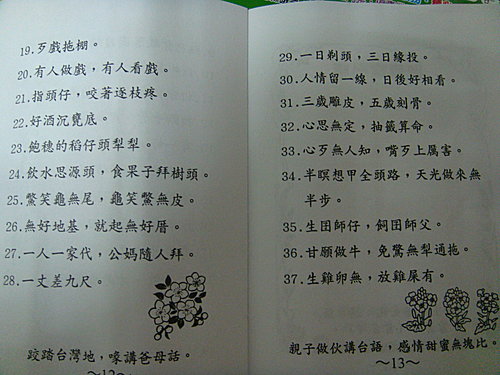 19. 歹戲拖棚。
20. 有人做戲，有人看戲。
21. 指頭仔，咬著逐枝疼。
22. 好酒沉甕底。
23. 飽穗的稻仔頭犁犁。
24. 飲水思源頭，食果子拜樹頭。
25. 鱉笑龜無尾，龜笑鱉無皮。
26. 無好地基，就起無好厝。
27. 一人一家代，公媽隨人拜。
28. 一丈差九尺。
跤踏台灣地，嚎講爸母話。
～12～
29. 一日剃頭，三日緣投。
30. 人情留一線，日後好相看。
31. 三歲雕皮，五歲刻骨。
32. 心思無定，抽籤算命。
33. 心歹無人知，嘴歹上厲害。
34. 半暝想甲全頭路，天光做來無
半步。
35. 生囝師仔，飼囝師父。
36. 甘願做牛，免驚無犁通拖。
37. 生雞卵無，放雞屎有。
親子做伙講台語，感情甜蜜無塊比。
～13～